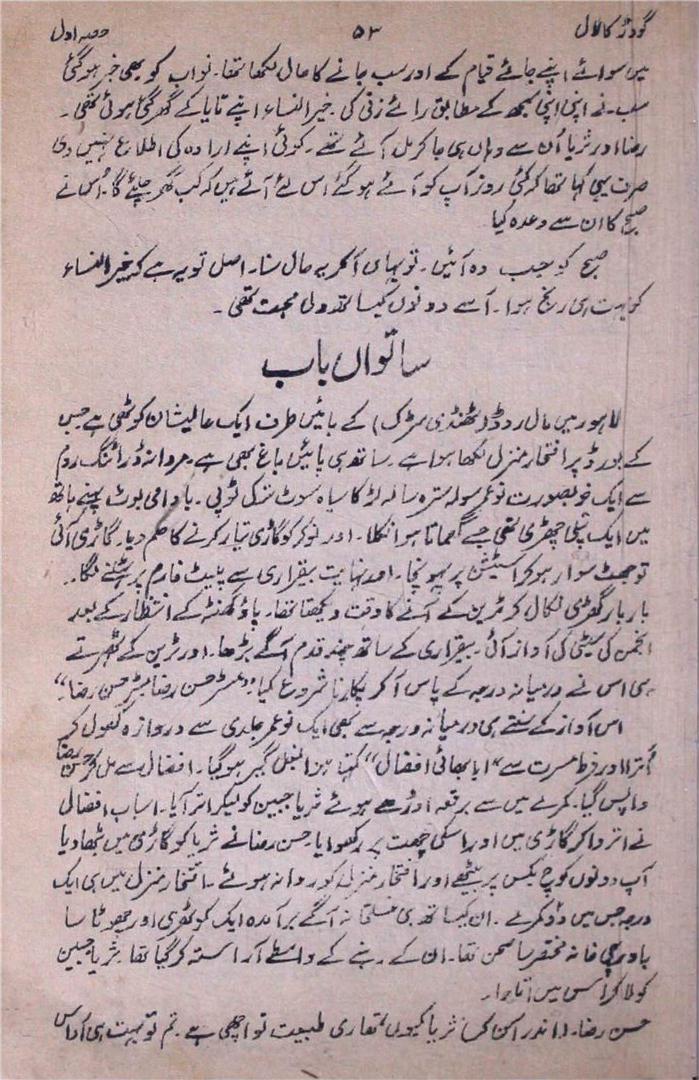 گودڑ کا لال ۵۳ حصہ اول
میں سوائے اپنے جائے قیام کے اور سب جانے کا حال لکھا تھا۔ نواب کو بھی خبر ہو گئی
سب نے اپنی اپنی سمجھ کے مطابق رائے زنی کی۔ خیرالنساء اپنے تایا کے گھر گئی ہوئی تھی۔
رضا اور ثریا اُن سے وہاں ہی جا کر مل آئے تھے۔ کوئی اپنے ارادہ کی اطلاع نہیں دی
صرف یہی کہا تھا کہ کئی روز آپ کو آئے ہو گئے اس لئے آئے ہیں کہ کب گھر چلئے گا۔ اُنہوں نے
صبح کا ان سے وعدہ کیا
صبح کو جب وہ آئیں۔ تو یہاں آ کر یہ حال سنا۔ اصل تو یہ ہے کہ خیرالنساء
کو بہت ہی رنج ہوا۔ اُسے دونوں کیساتھ دلی محبت تھی۔
ساتواں باب
لاہور میں مال روڈ (ٹھنڈی سڑک) کے بائیں طرف ایک عالیشان کوٹھی ہے جس
کے بورڈ پر افتخار منزل لکھا ہوا ہے۔ ساتھ ہی پائیں باغ بھی ہے۔ مردانہ ڈرائنگ روم
سے ایک خوبصورت نوعمر سولہ سترہ سالہ لڑکا سیاہ سوٹ ترکی ٹوپی۔ بادامی بوٹ پہنے ہاتھ
میں ایک پتلی چھڑی تھی جسے گھماتا ہوا نکلا۔ اور نوکر کو گاڑی تیار کرنے کا حکم دیا۔ گاڑی آئی
تو جھٹ سوار ہو کر اسٹیشن پر پہونچا۔ اور نہایت بیقراری سے پلیٹ فارم پر ٹہلنے لگا۔
بار بار گھڑی نکال کر ٹرین کے آنے کا وقت دیکھتا تھا۔ پاؤ گھنٹہ کے انتظار کے بعد
انجن کی سیٹی کی آواز آئی۔ بیقراری کے ساتھ چند قدم آگے بڑھا۔ اور ٹرین کے ٹھہرتے
ہی اس نے درمیانہ درجہ کے پاس آ کر پکارنا شروع کیا "مسٹر حسن رضا مسٹر حسن رضا"
اس آواز کے سنتے ہی درمیانہ درجہ سے بھی ایک نوعمر جلدی سے دروازہ کھول کر
اُترا اور فرط مسرت سے "اہا بھائی افضال" کہتا ہوا بغل گیر ہو گیا۔ افضال سے مل کر حسن رضا
واپس گیا۔ کمرے میں سے برقعہ اوڑھے ہوئے ثریا جبین کو لیکر اتر آیا۔ اسباب افضال
نے اتروا کر گاڑی میں اور اسکی چھت پر رکھوایا۔ حسن رضا نے ثریا کو گاڑی میں بٹھا دیا
آپ دونوں کوچ بکس پر بیٹھے اور افتخار منزل کو روانہ ہوئے۔ افتخار منزل میں ہی ایک
درجہ جس میں دو کمرے۔ ان کیساتھ ہی غسلخانہ آگے برآمدہ ایک کوٹھری اور چھوٹا سا
باورچی خانہ مختصر سا صحن تھا۔ ان کے رہنے کے واسطے آراستہ کر گیا تھا۔ ثریا جبین
کو لا کر اس میں اتارا۔
حسن رضا۔ (اندر آن کر) ثریا کیوں تمھاری طبیعت تو اچھی ہے۔ تم تو بہت ہی اداس